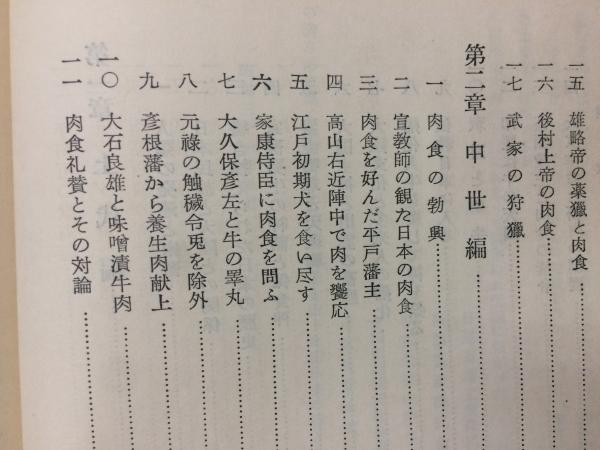 一五 雄略帝の薬獵と肉食
一六 後村上帝の肉食
一七 武家の狩獵
第二章 中世編
一 肉食の勃興
二 宣教師の観た日本の肉食
三 肉食を好んだ平戸藩主
四 高山右近陣中で肉を饗応
五 江戸初期犬を食い尽す
六 家康侍臣に肉食を問ふ
七 大久保彦左と牛の睾丸
八 元祿の触穢令兎を除外
九 彦根藩から養生肉献上
一〇 大石良雄と味噌漬牛肉
一一 肉食礼賛とその対論